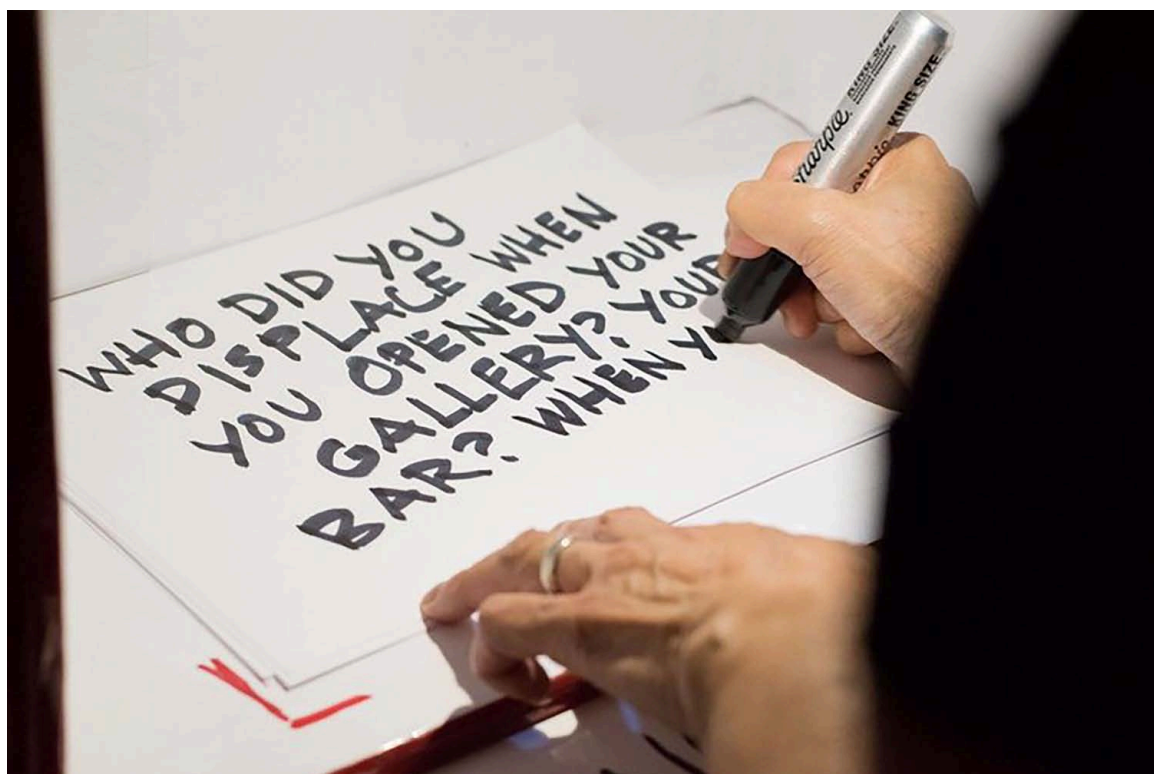 WHO DID YOU
DISPLACE WHEN
YOU OPENED YOUR
GALLERY? YOUR
BAR? WHEN Y
Sharpie.
KING SIZE
KING SIZE